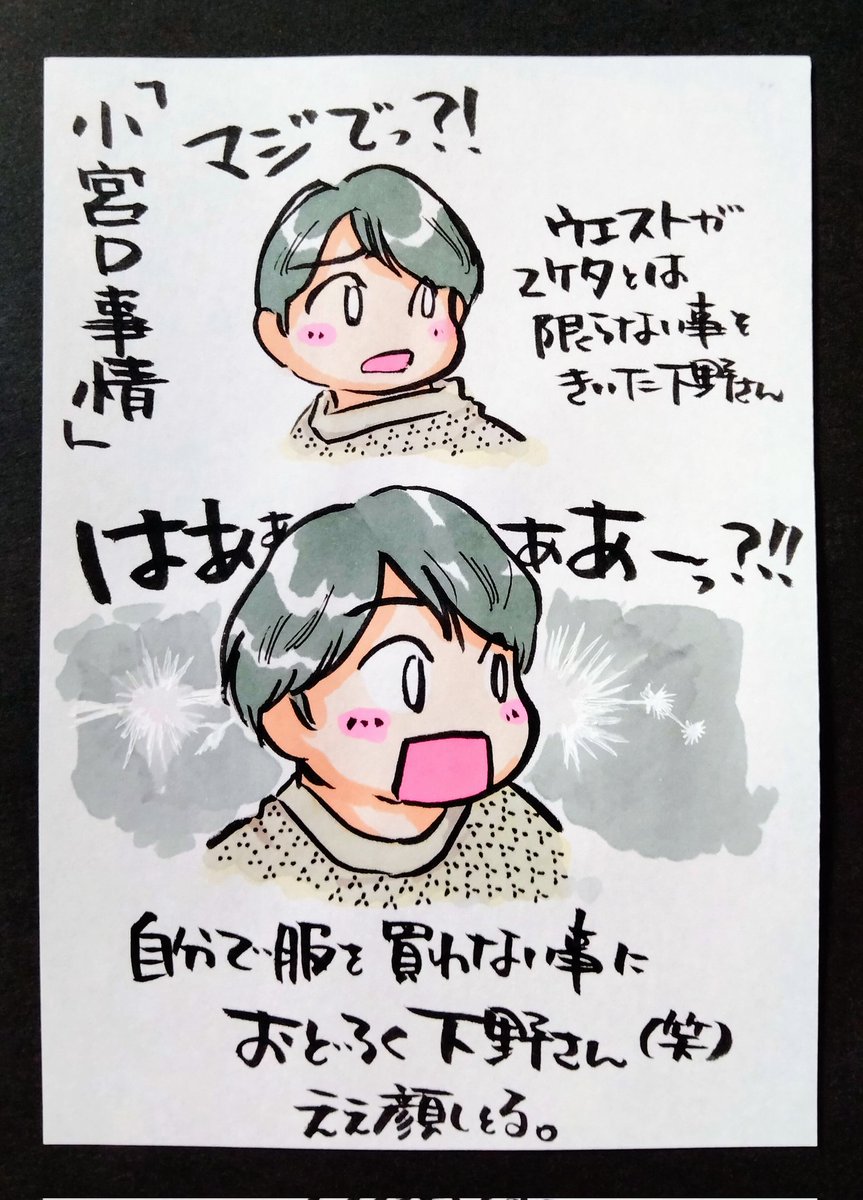 「小宮D事情」
マジでっ?!
ウエストが
2ケタとは
限らない事を
きいた下野さん
はあぁぁあーっ?!!
自分で服を買わない事に
おどろく下野さん(笑)
ええ顔しとる。